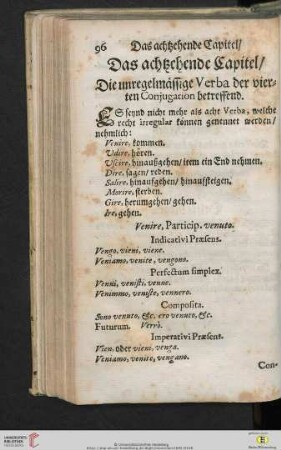 96 Das achtzehende Capitel/
Das achtzehende Capitel/
Die unregelmässige Verba der vier-
ten Conjugation betreffend.
ES seynd nicht mehr als acht Verba, welche
recht irregular können genennet werden/
nehmlich:
Venire, kommen.
Udire, hören.
Uscire, hinaußgehen/ item ein End nehmen.
Dire, sagen/ reden.
Salire, hinaufgehen/ hinauffsteigen.
Morire, sterben.
Gire, herumgehen/ gehen.
Ire, gehen.
Venire, Particip. venuto.
Indicativi Præsens.
Vengo, vieni, viene.
Veniamo, venite, vengono.
Perfectum simplex.
Venni, venisti, venne.
Venimmo, veniste, vennero.
Composita.
Sono venuto, &c. ero venuto, &c.
Futurum. Verrò.
Imperativi Præsens.
Vien, oder vieni, venga.
Veniamo, venite, vengano.
Con-